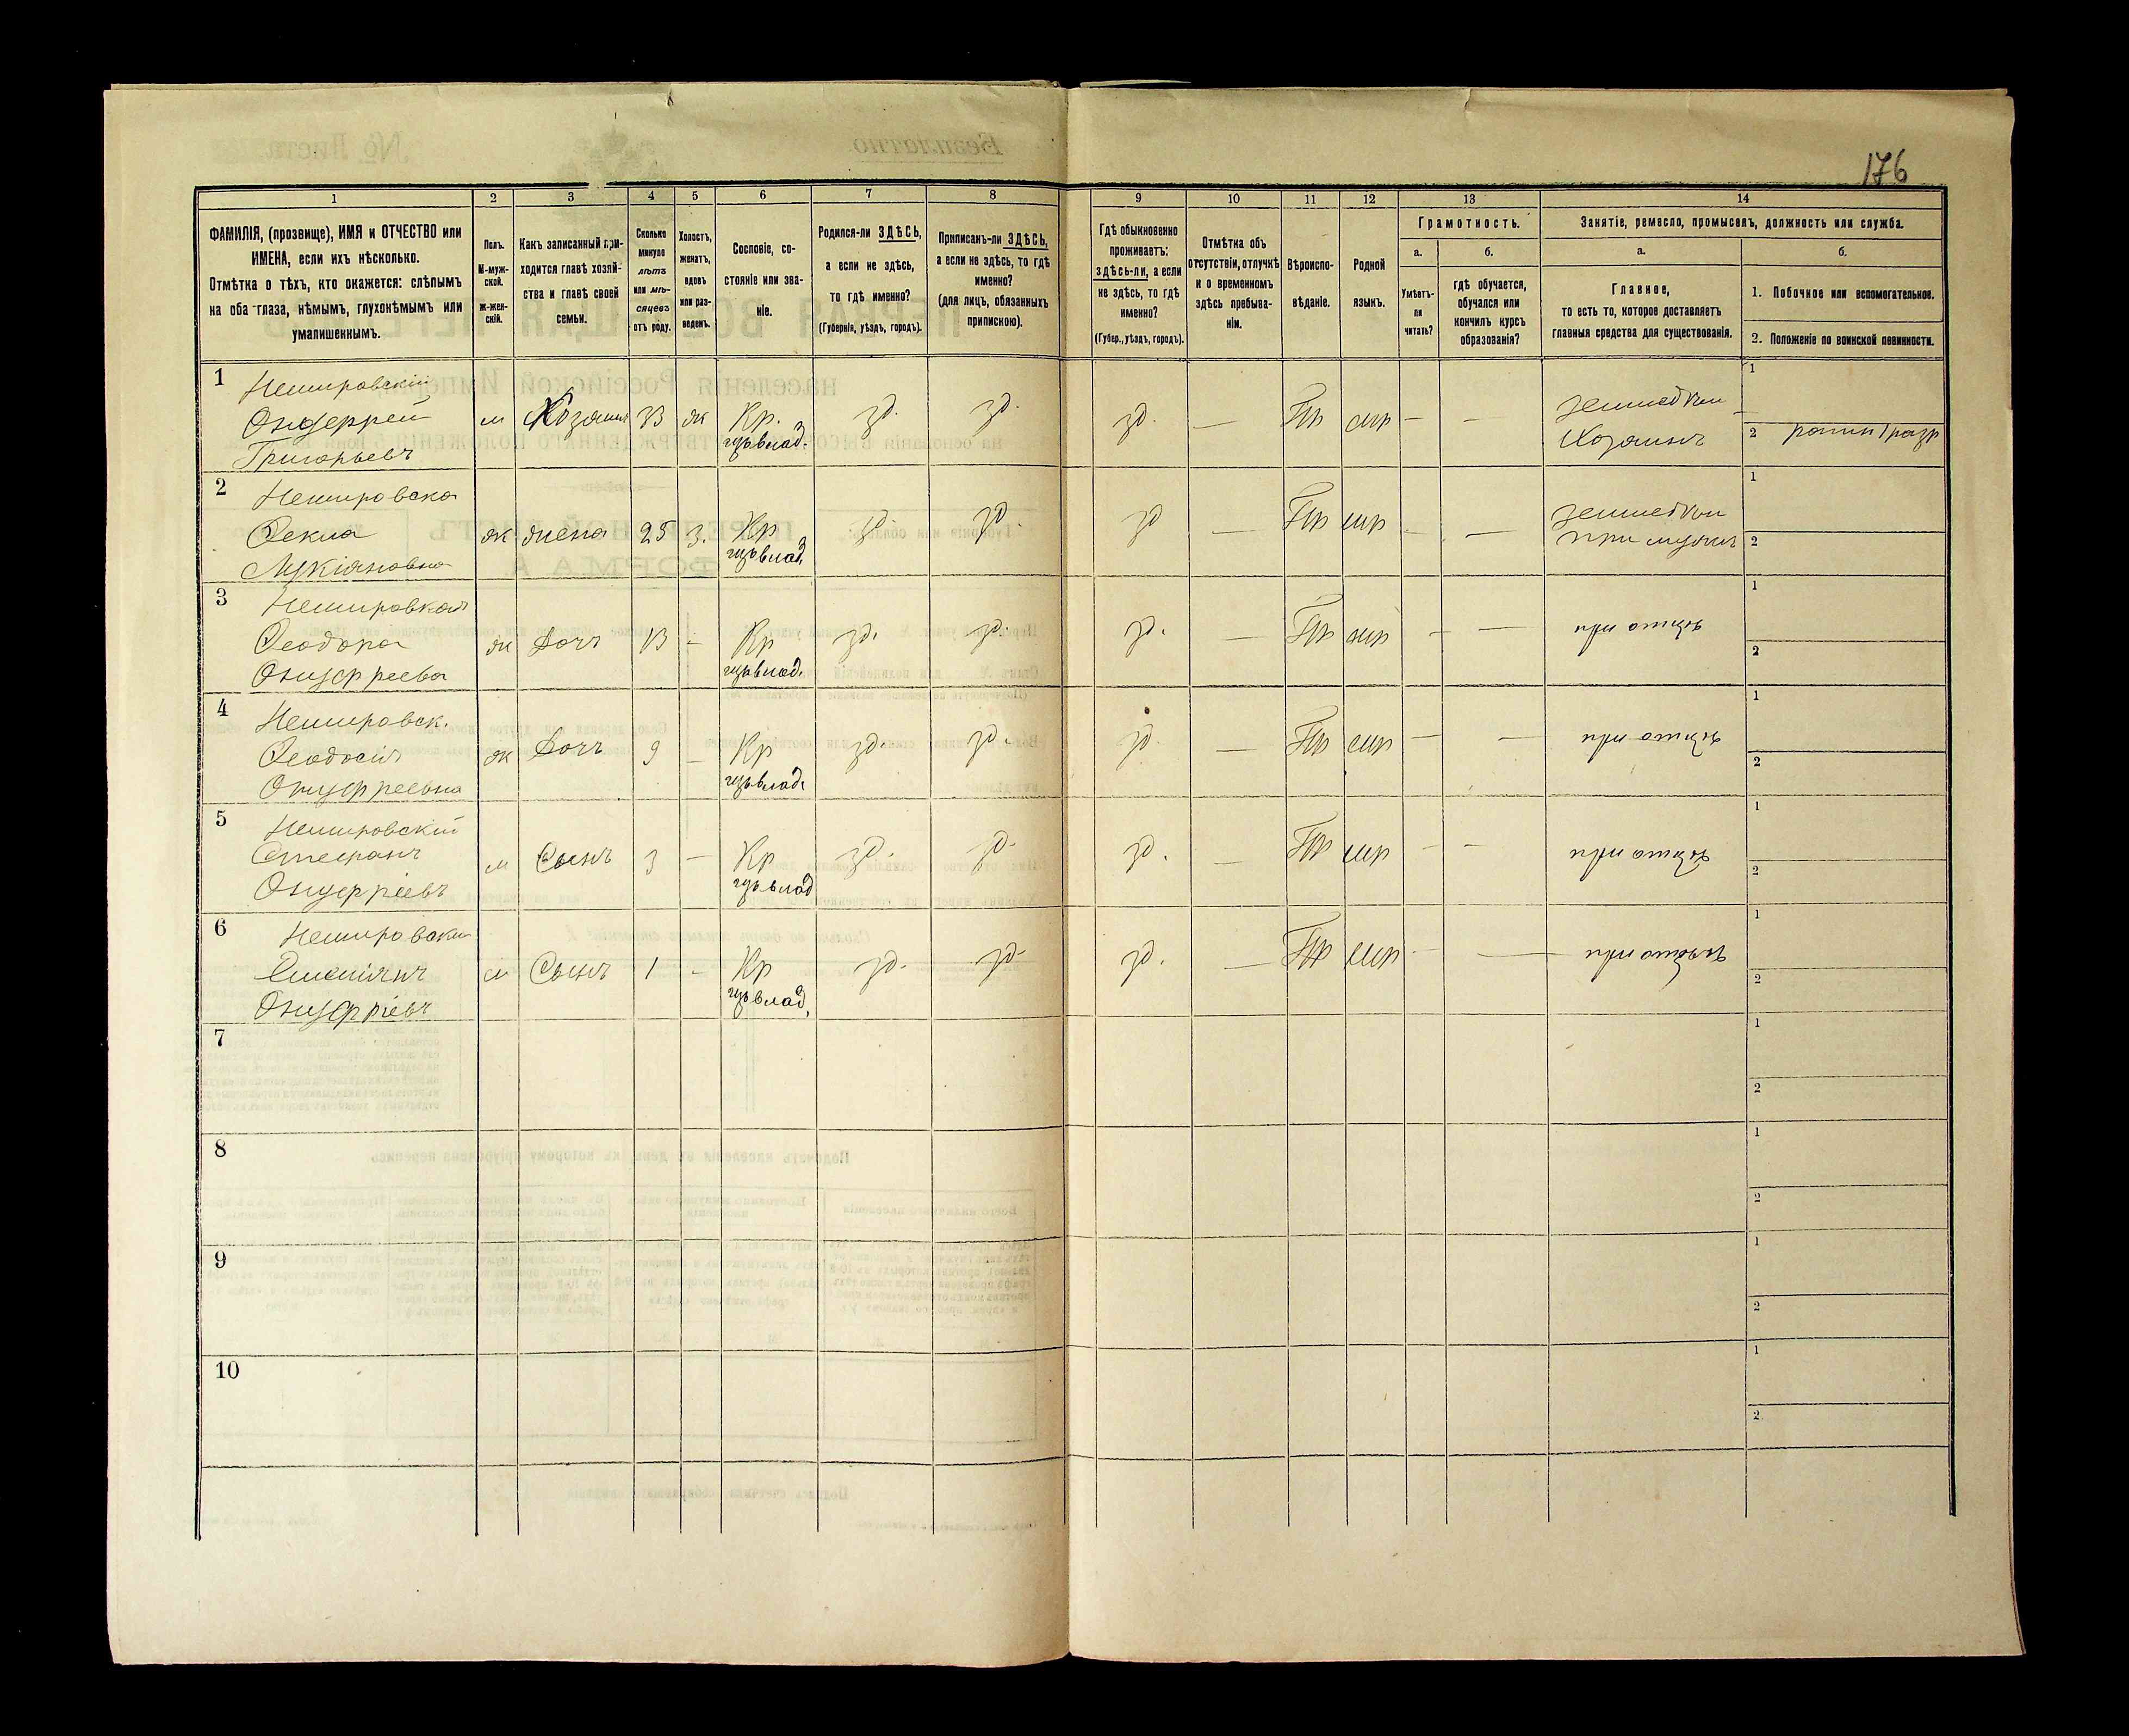 176
1 2 3 4 5 6 7 8 9 10 11 12 13 14
ФАМИЛІЯ, (прозвище), ИМЯ и ОТЧЕСТВО или
ИМЕНА, если ихъ нѣсколько.
Отмѣтка о тѣхъ, кто окажется: слѣпымъ
на оба глаза, нѣмымъ, глухонѣмымъ или
умалишеннымъ.
Полъ.
М-муж-
ской.
ж-жен-
скій.
Какъ записанный при-
ходится главѣ хозяй-
ства и главѣ своей
семьи.
Сколько
минуло
лѣтъ
или мѣ-
сяцевъ
отъ роду.
Холостъ,
женатъ,
вдовъ
или раз-
веденъ.
Сословіе, со-
стояніе или зва-
ніе.
Родился-ли ЗДѢСЬ,
а если не здѣсь,
то гдѣ именно?
(Губернія, уѣздъ, городъ).
Приписанъ-ли ЗДѢСЬ,
а если не здѣсь, то гдѣ
именно?
(для лицъ, обязанныхъ
припискою).
Гдѣ обыкновенно
проживаетъ:
здѣсь-ли, а если
не здѣсь, то гдѣ
именно?
(Губер., уѣздъ, городъ).
Отмѣтка объ
отсутствіи, отлучкѣ
и о временномъ
здѣсь пребыва-
ніи.
Вѣроиспо-
вѣданіе.
Родной
языкъ.
Грамотность.
а.
Умѣетъ-
ли
читать?
б.
гдѣ обучается,
обучался или
кончилъ курсъ
образованія?
Занятіе, ремесло, промыселъ, должность или служба.
а.
Главное,
то есть то, которое доставляетъ
главныя средства для существованія.
б.
1. Побочное или вспомогательное.
2. Положеніе по воинской повинности.
1 Немировскій
Онуфрей м Хозяинъ 33 ж Кр. зд. зд. зд. — Пр мр — —
Григорьевъ
Хозяинъ
1
2
2 Немировска
Фекла ж жена 25 з. Кр зд. зд. зд — Пр мр — —
Лукіяновна
при мужѣ
1
2
3 Немировкая
Феодора ж дочъ 13 — Кр зд. зд. зд. — Пр мр — — при отцѣ
Онуфреева
1
2
4 Немировск.
Феодосія ж дочъ 9 — Кр зд. зд. зд. — Пр мр — — при отцѣ
Онуфреевна
1
2
5 Немировскій
Стефанъ м Сынъ 3 — Кр зд. зд. зд. — Пр мр — — при отцѣ
Онуфріевъ
1
2
6 Немировски
м Сынъ 1 — Кр зд. зд. зд. — Пр мр — — при отцѣ
Онуфріевъ
1
2
7
1
2
8
1
2
9
1
2
10
1
2